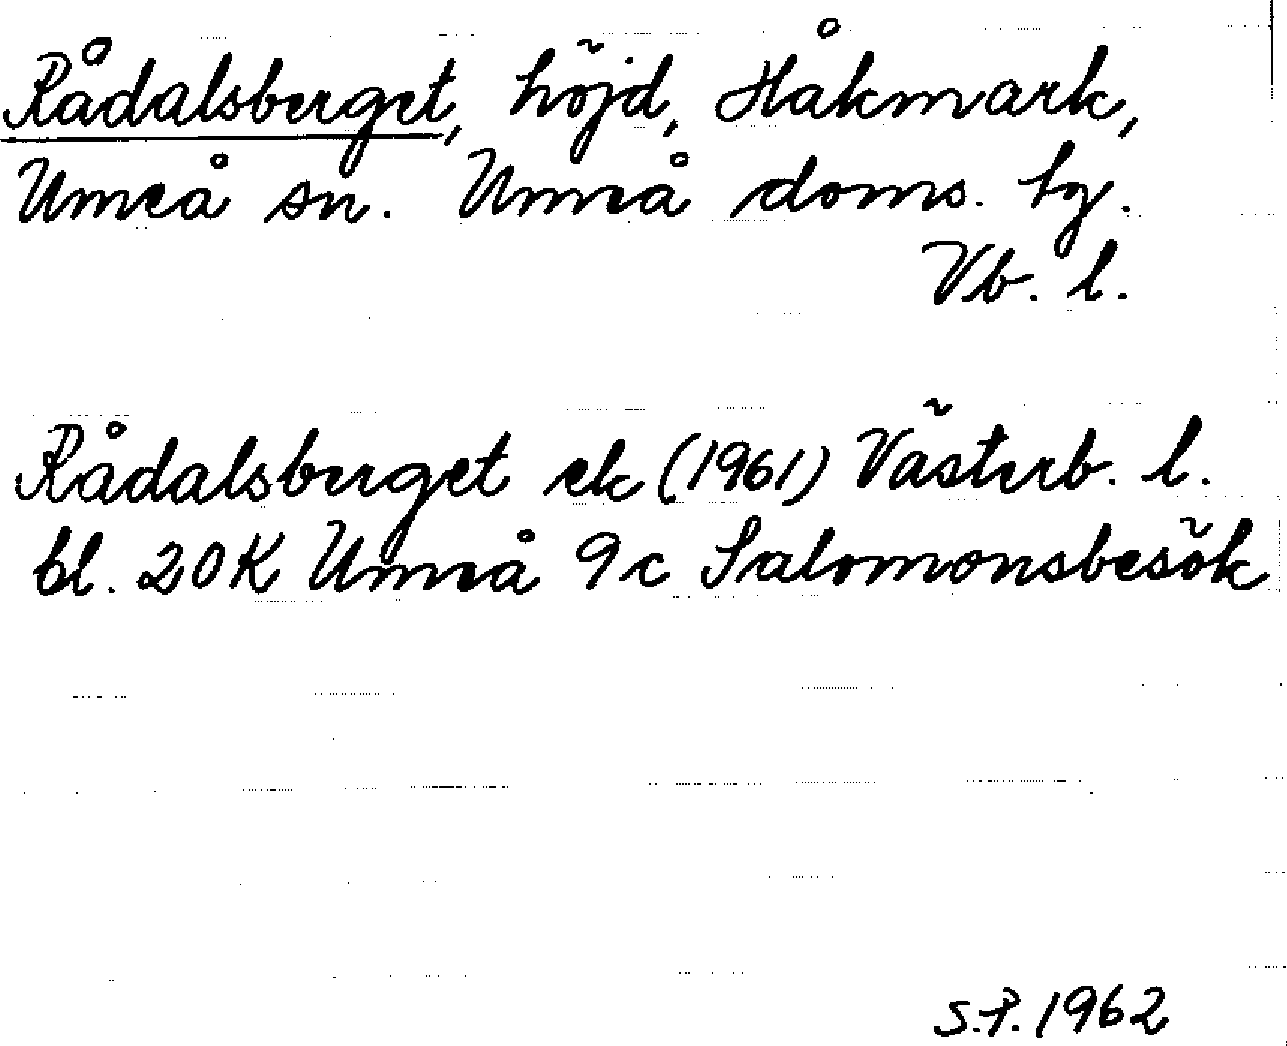 Rådalsberget, höjd, Håkmark,
Umeå sn. Umeå doms. tg.
Vb. l.
Rådalsberget ek (1961) Västerb. l.
bl. 20K Umeå 9c Salomonsbesök
S.P. 1962